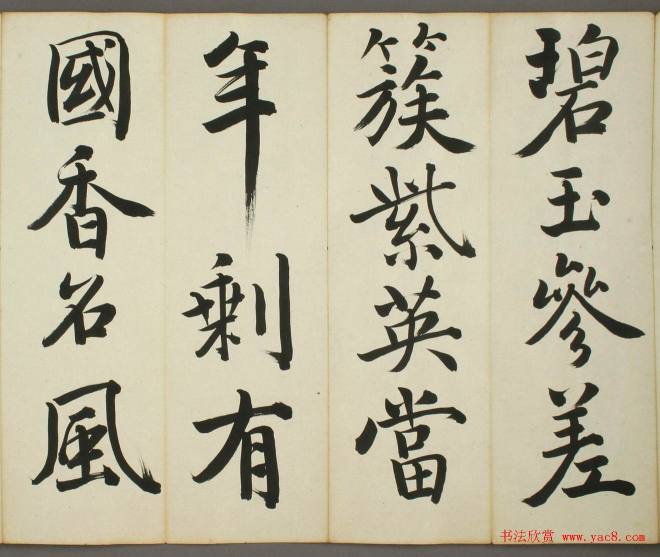 碧玉參差
簇紫英當
年剩有
國香名風
书法欣赏 www.yac8.com